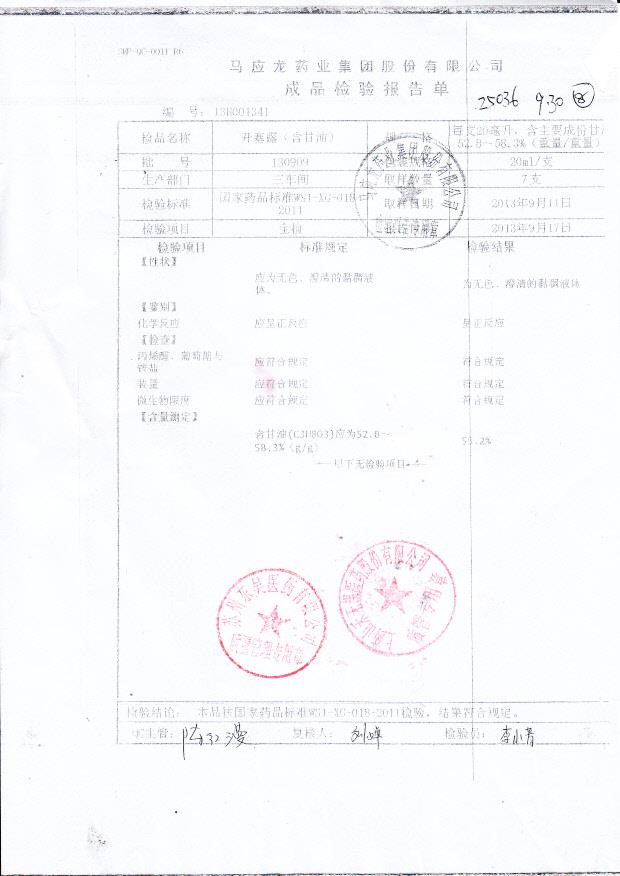 SMP-QC-0011 R6
马应龙药业集团股份有限公司
成品检验报告单
25036 9.30 ⑧
编 号: 13H001341
检品名称 开塞露（含甘油） 规 格 每支20毫升，含主要成份甘
52.8～58.3%（重量/重量）
批 号 130909 包装规格 20ml/支
生产部门 三车间 取样数量 7支
检验标准 国家药品标准WS1-XG-018-2011 取样日期 2013年9月11日
检验项目 全检 报告日期 2013年9月17日
检验项目 标准规定 检验结果
【性状】
应为无色、澄清的黏稠液体。 为无色、澄清的黏稠液体
【鉴别】
化学反应 应呈正反应 呈正反应
【检查】
丙烯醛、葡萄糖与铵盐 应符合规定 符合规定
装量 应符合规定 符合规定
微生物限度 应符合规定 符合规定
【含量测定】
含甘油(C3H8O3)应为52.8～
58.3%（g/g） 55.2%
以下无检验项目
苏州东吴医药有限公司
医药有限公司
检验结论: 本品按国家药品标准WS1-XG-018-2011检验，结果符合规定。
室主管: 复核人: 检验员: 李小青